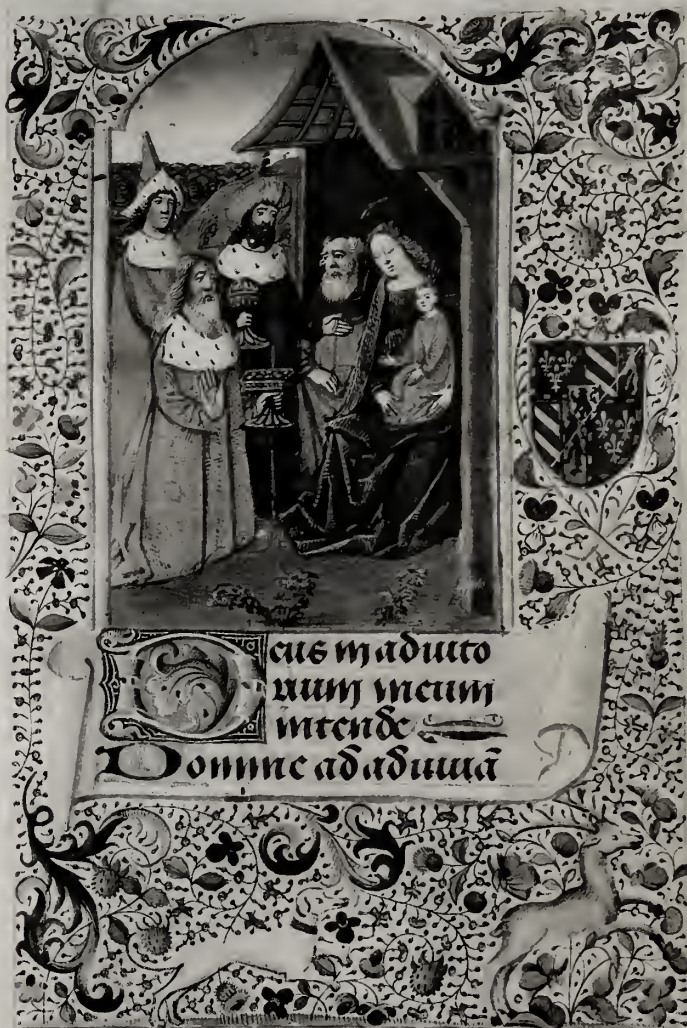 Deus in adiuto
rium meum
intende
Domine ad adiuuā